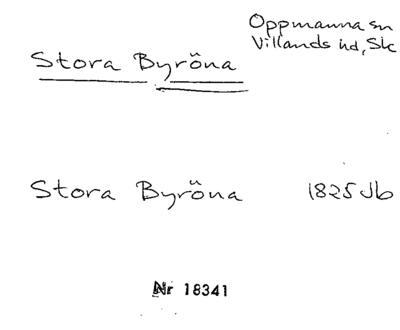 Oppmanna sn
Villands hd, Sk
Stora Byröna
Stora Byröna 1825 Jb
Nr 18341